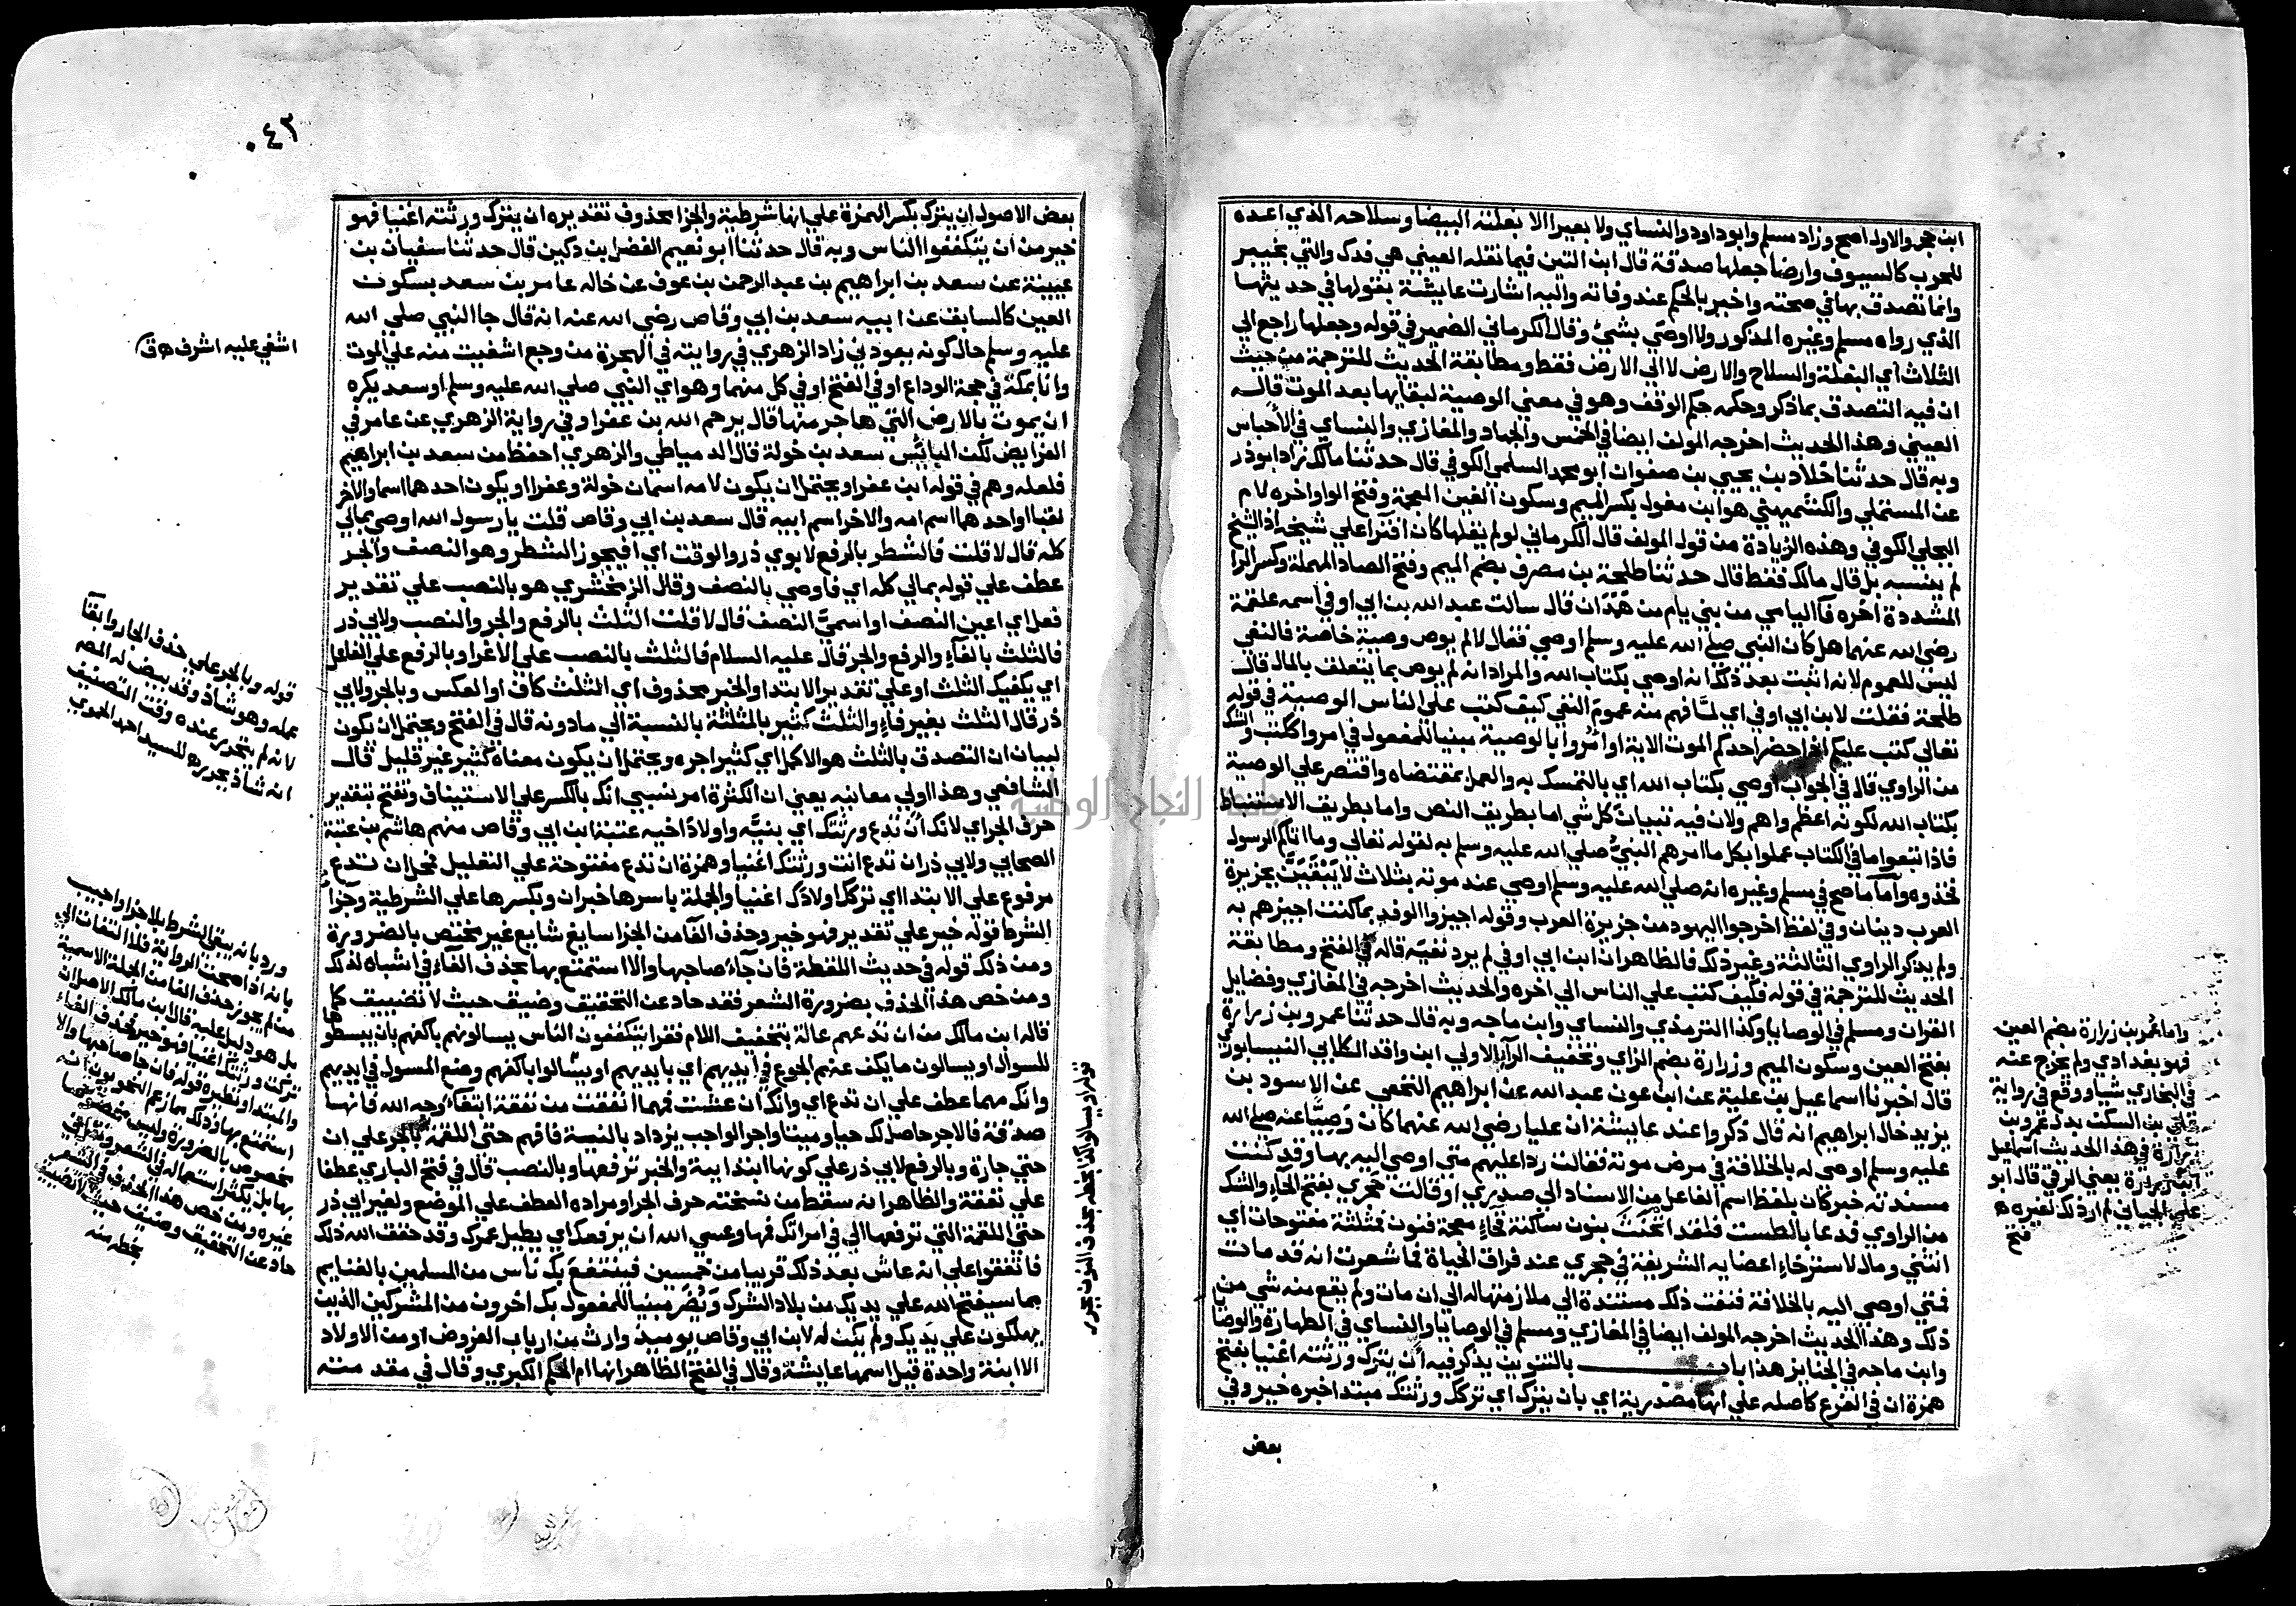 ابن حجر والاول اصح وزاد مسلم وابو داود والنساي ولا بعيرا الا بغلته البيضا وسلاحه الذي اعده
للحرب كالسيوف وارضا جعلها صدقة قال ابن التين فيما نقله العيني هي فدك والتي بخيبر
وانما تصدق بها في صحته واخبر بالحكم عند وفاته واليه اشارت عايشة بقولها في حديثها
الذي رواه مسلم وغيره المذكور ولا اوصي بشيئ وقال الكرماني الضمير في قوله وجعلها راجع الي
الثلاث اي البغلة والسلاح والارض لا الي الارض فقط ومطابقة الحديث للترجمة من حيث
ان فيه التصدق بما ذكر وحكمه حكم الوقف وهو في معني الوصية لبقايها بعد الموت قاله
العيني وهذا الحديث اخرجه المولف ايضا في الخمس والجهاد والمغازي والنساي في الاحباس
وبه قال حدثنا خلاد بن يحيي بن صفوان ابو محمد السلمي الكوفي قال حدثنا مالك زاد ابو ذر
عن المستملي والكشميهني هو ابن مغول بكسر الميم وسكون الغين المعجمة وفتح الواو اخره لام
البجلي الكوفي وهذه الزيادة من قول المولف قال الكرماني لو لم يقلها كان افترا علي شيخه اذ الشيخ
لم ينسبه بل قال مالك فقط قال حدثنا طلحة بن مصرف بضم الميم وفتح الصاد المهملة وكسر الرا
المشددة اخره فآ اليامي من بني يام من همدان قال سالت عبد الله بن ابي اوفي اسمه علقمة
رضي الله عنهما هل كان النبي صلي الله عليه وسلم اوصي فقال لا لم يوص وصية خاصة فالنفي
ليس للعموم لانه اثبت بعد ذلك انه اوصي بكتاب الله والمراد انه لم يوص بما يتعلق بالمال قال
طلحة فقلت لابن ابي اوفي اي لما فهم منه عموم النفي كيف كتب علي الناس الوصية في قوله
تعالي كتب عليكم اذا حضر احدكم الموت الاية او امروا بالوصية مبنيا للمفعول في امروا كتب والشك
من الراوي قال في الجواب اوصي بكتاب الله اي بالتمسك به والعمل بمقتضاه واقتصر علي الوصية
بكتاب الله لكونه اعظم واهم ولان فيه تبيان كل شي اما بطريق النص واما بطريق الاستنباط
فاذا اتبعوا ما في الكتاب عملوا بكل ما امرهم النبي صلي الله عليه وسلم به لقوله تعالي وما اتاكم الرسول
فخذوه واما ما صح في مسلم وغيره انه صلي الله عليه وسلم اوصي عند موته بثلاث لا يبقين بجزيرة
العرب دينان وفي لفظ اخرجوا اليهود من جزيرة العرب وقوله اجيزوا الوفد بما كنت اجيزهم به
ولم يذكر الراوي الثالثة وغير ذلك فالظاهر ان ابن ابي اوفي لم يرد نفيه قاله في الفتح ومطابقة
الحديث للترجمة في قوله فكيف كتب علي الناس الي اخره والحديث اخرجه في المغازي وفضايل
القران ومسلم في الوصايا وكذا الترمذي والنساي وابن ماجه وبه قال حدثنا عمرو بن زرارة
بفتح العين وسكون الميم وزرارة بضم الزاي وتخفيف الرآ الاولي ابن واقد الكلابي النيسابوري
قال اخبرنا اسماعيل بن علية عن ابن عون عبد الله عن ابراهيم النخعي عن الاسود بن
يزيد خال ابراهيم انه قال ذكروا عند عايشة ان عليا رضي الله عنهما كان وصيا عنه صلي الله
عليه وسلم اوصي له بالخلافة في مرض موته فقالت ردا عليهم متي اوصي اليه بها وقد كنت
مسندته خبر كان بلفظ اسم الفاعل من الاسناد الي صدري او قالت حجري بفتح الحآء والشك
من الراوي فدعا بالطست فلقد انخنث بنون ساكنة فخاء معجمة فنون فمثلثة مفتوحات اي
انثني ومال لاسترخاء اعضايه الشريفة في حجري عند فراق الحياة فما شعرت انه قد مات
فمتي اوصي اليه بالخلافة فنفت ذلك مستندة الي ملازمتها له الي ان مات ولم يقع منه شي من
ذلك وهذا الحديث اخرجه المولف ايضا في المغازي ومسلم في الوصايا والنساي في الطهارة والوصايا
وابن ماجه في الجنايز هذا باب بالتنوين يذكر فيه ان يترك ورثته اغنيا بفتح
همزة ان في الفرع كاصله علي انها مصدرية اي بان يترك اي تركك ورثتك مبتدا خبره خير وفي
بعض
واما عمر بن زرارة بضم العين
فهو بغدادي ولم يخرج عنه
في البخاري شيا ووقع في رواية
بن السكن بدل عمرو بن
زرارة في هذا الحديث اسمعيل
ابن زرارة يعني الرقي قال ابو
علي الجياني لم ار ذلك لغيره ه
فتح
٠٤٢
بعض الاصول ان يترك بكسر الهمزة علي انها شرطية والجزا محذوف تقديره ان يترك ورثته اغنيا فهو
خير من ان يتكففوا الناس وبه قال حدثنا ابو نعيم الفضل بن دكين قال حدثنا سفيان بن
عيينة عن سعد بن ابراهيم بن عبد الرحمن بن عوف عن خاله عامر بن سعد بسكون
العين كالسابق عن ابيه سعد بن ابي وقاص رضي الله عنه انه قال جا النبي صلي الله
عليه وسلم حال كونه يعودني زاد الزهري في روايته في الهجرة من وجع اشفيت منه علي الموت
وانا بمكة في حجة الوداع او في الفتح او في كل منهما وهو اي النبي صلي الله عليه وسلم او سعد يكره
ان يموت بالارض التي هاجر منها قال يرحم الله بن عفرا وفي رواية الزهري عن عامر في
الفرايض لكن البائس سعد بن خولة قال الدمياطي والزهري احفظ من سعد بن ابراهيم
فلعله وهم في قوله ابن عفرا ويحتمل ان يكون لامه اسمان خولة وعفرا او يكون احدهما اسما والاخر
لقبا او احدهما اسم امه والاخر اسم ابيه قال سعد بن ابي وقاص قلت يا رسول الله اوصي بمالي
كله قال لا قلت فالشطر بالرفع لابوي ذر والوقت اي افيجوز الشطر وهو النصف والجر
عطف علي قوله بمالي كله اي فاوصي بالنصف وقال الزمخشري هو بالنصب علي تقدير
فعل اي اعين النصف او اسمي النصف قال لا قلت الثلث بالرفع والجر والنصب ولابي ذر
فالثلث بالفآء والرفع والجر قال عليه السلام فالثلث بالنصب علي الاغرا وبالرفع علي الفاعل
اي يكفيك الثلث او علي تقدير الابتدا والخبر محذوف اي الثلث كاف او العكس وبالجر ولابي
ذر قال الثلث بغير فاء والثلث كثير بالمثلثة بالنسبة الي ما دونه قال في الفتح ويحتمل ان يكون
لبيان ان التصدق بالثلث هو الاكمل اي كثير اجره ويحتمل ان يكون معناه كثير غير قليل قال
الشافعي وهذا اولي معانيه يعني ان الكثرة امر نسبي انك بالكسر علي الاستيناف وتفتح بتقدير
حرف الجر اي لانك ان تدع ورثتك اي بنته واولاد اخيه عتبة ابن ابي وقاص منهم هاشم بن عتبة
الصحابي ولابي ذر ان تدع انت ورثتك اغنيا وهمزة ان تدع مفتوحة علي التعليل فمحل ان تدع
مرفوع علي الابتدا اي تركك اولادك اغنيا والجملة باسرها خبر ان وبكسرها علي الشرطية وجزآ
الشرط قوله خير علي تقدير فهو خير وحذف الفآ من الجزا سايغ شايع غير مختص بالضرورة
ومن ذلك قوله في حديث اللقطة فان جآء صاحبها والا استمتع بها بحذف الفاء في اشباه لذلك
ومن خص هذا الحذف بضرورة الشعر فقد حاد عن التحقيق وضيق حيث لا تضييق كما
قاله ابن مالك من ان تدعهم عالة بتخفيف اللام فقرا يتكففون الناس يسالونهم باكفهم بان يبسطوها
للسوال او يسالون ما يكف عنهم الجوع في ايديهم اي بايديهم او يسالوا باكفهم وضع المسول في ايديهم
وانك مهما عطف علي ان تدع اي وانك ان عشت فمهما انفقت من نفقة ابتغاء وجه الله فانها
صدقة فالاجر حاصل لك حيا وميتا واجر الواجب يزداد بالنية فافهم حتي اللقمة بالجر علي ان
حتي جارة وبالرفع لابي ذر علي كونها ابتدايية والخبر ترفعها وبالنصب قال في فتح الباري عطفا
علي نفقة والظاهر انه سقط من نسخته حرف الجر او مراده العطف علي الموضع ولغير ابي ذر
حتي اللقمة التي ترفعها الي في امراتك فمها وعسي الله ان يرفعك اي يطيل عمرك وقد حقق الله ذلك
فاتفقوا علي انه عاش بعد ذلك قريبا من خمسين فينتفع بك ناس من المسلمين بالغنايم
بما سيفتح الله علي يديك من بلاد الشرك ويضر مبنيا للمفعول بك اخرون من المشركين الذين
يهلكون علي يديك ولم يكن له لابن ابي وقاص يوميذ وارث من ارباب الفروض او من الاولاد
الا ابنة واحدة قيل اسمها عايشة وقال في الفتح الظاهر انها ام الحكم الكبري وقال في مقدمته
اشفي عليه اشرف ه ق
قوله وبالجر علي حذف الجار وابقآ
عمله وهو شاذ وقد بيض له المصم
لانه لم يتحرر عنده وقت التصنيف
انه شاذ بحرره للسيد احمد الحموي
ورد بانه يبقي الشرط بلا جزا واجيب
بانه اذا صحت الرواية فلا التفات الي
من لم يجوز حذف الفا من الجملة الاسمية
بل هو دليل عليه قال ابن مالك الاصل ان
تركت ورثتك اغنيا فهو خير فحذف الفاء
والمبتدا ونظيره قوله فان جا صاحبها والا
استمتع بها وذلك مما زعم النحويون انه
مخصوص بالضرورة وليس مخصوصا
بها بل يكثر استعماله في الشعر وقل في
غيره ومن خص هذا الحذف في الشعر
حاد عن التحقيق وضيق حيث لا تضييق
بخطه منه
قوله او يسالوا كذا بخطه بحذف النون يحرر
جامعة النجاح الوطنية